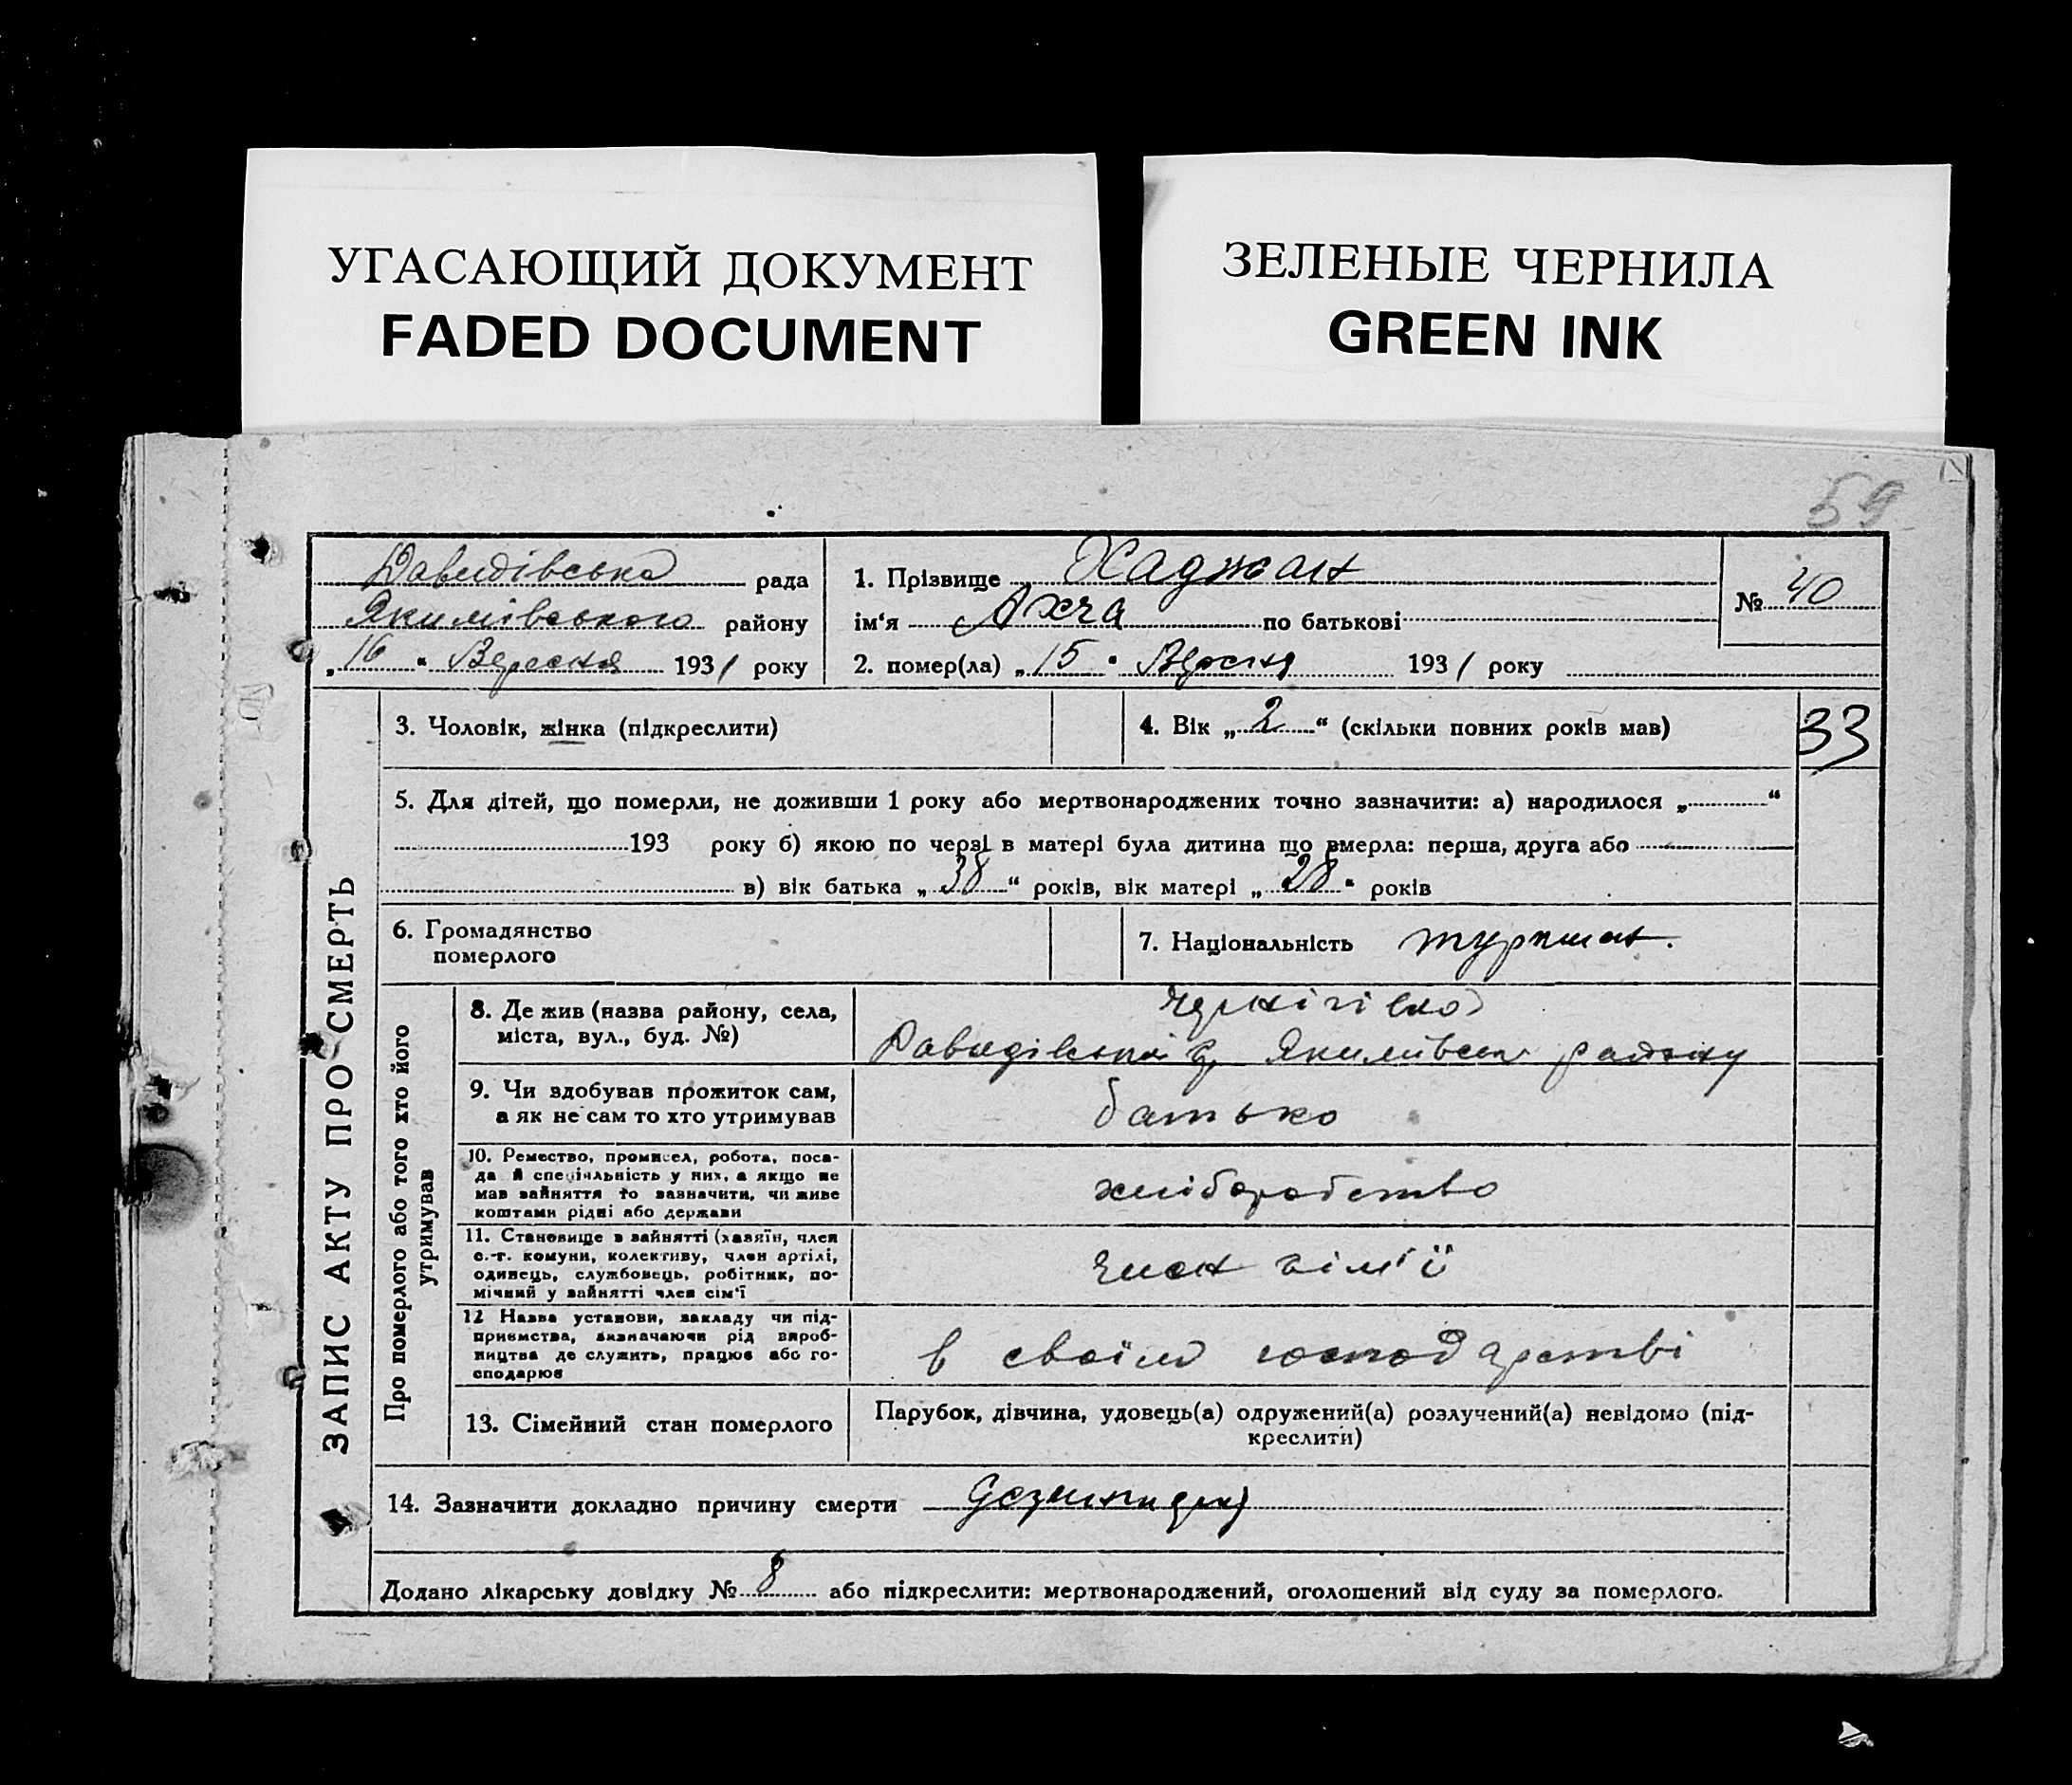 УГАСАЮЩИЙ ДОКУМЕНТ
FADED DOCUMENT
ЗЕЛЕНЫЕ ЧЕРНИЛА
GREEN INK
59
Давидівська рада
Якимівського району
„16“ Вересня 1931 року
1. Прізвище Хаджан
ім'я Ахча по батькові
2. помер(ла) „15“ Вересня 1931 року
№ 40
ЗАПИС АКТУ ПРО СМЕРТЬ
3. Чоловік, жінка (підкреслити)
4. Вік „2“ (скільки повних років мав)
33
5. Для дітей, що померли, не доживши 1 року або мертвонароджених точно зазначити: а) народилося „ “
193 року б) якою по черзі в матері була дитина що вмерла: перша, друга або
в) вік батька „38“ років, вік матері „28“ років
6. Громадянство
померлого
7. Національність
Про померлого або того хто його
утримував
8. Де жив (назва району, села,
міста, вул., буд. №)
Чернігівка
Якимівськ району
9. Чи здобував прожиток сам,
а як не сам то хто утримував
батько
10. Ремество, промисел, робота, поса-
да й спеціяльність у них, а якщо не
мав зайняття то зазначити, чи живе
коштами рідні або держави
хліборобство
11. Становище в зайнятті (хазяїн, член
с.-г. комуни, колективу, член артілі,
одинець, службовець, робітник, по-
мічний у зайнятті член сім'ї
член сім'ї
12 Назва установи, закладу чи під-
приємства, визначаючи рід вироб-
ництва де служить, працює або го-
сподарює
в своїм господарстві
13. Сімейний стан померлого
Парубок, дівчина, удовець(а) одружений(а) розлучений(а) невідомо (під-
креслити)
14. Зазначити докладно причину смерти
Додано лікарську довідку № 8 або підкреслити: мертвонароджений, оголошений від суду за померлого.